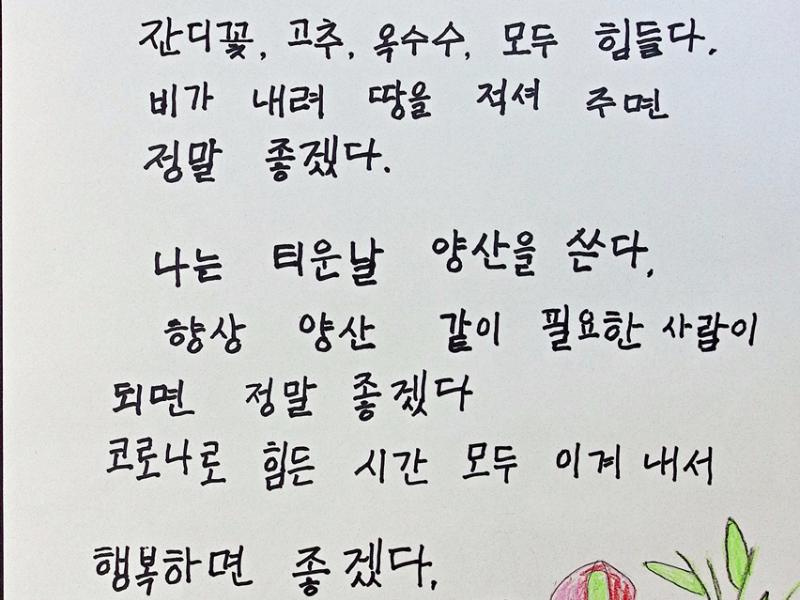 잔디꽃, 고추, 옥수수, 모두 힘들다.
비가 내려 땅을 적셔 주면
정말 좋겠다.
나는 틔운날 양산을 쓴다,
햐상 양산 같이 필요한 사람이
되면 정말 좋겠다
코로나로 힘든 시간 모두 이겨 내서
행복하면 좋겠다,